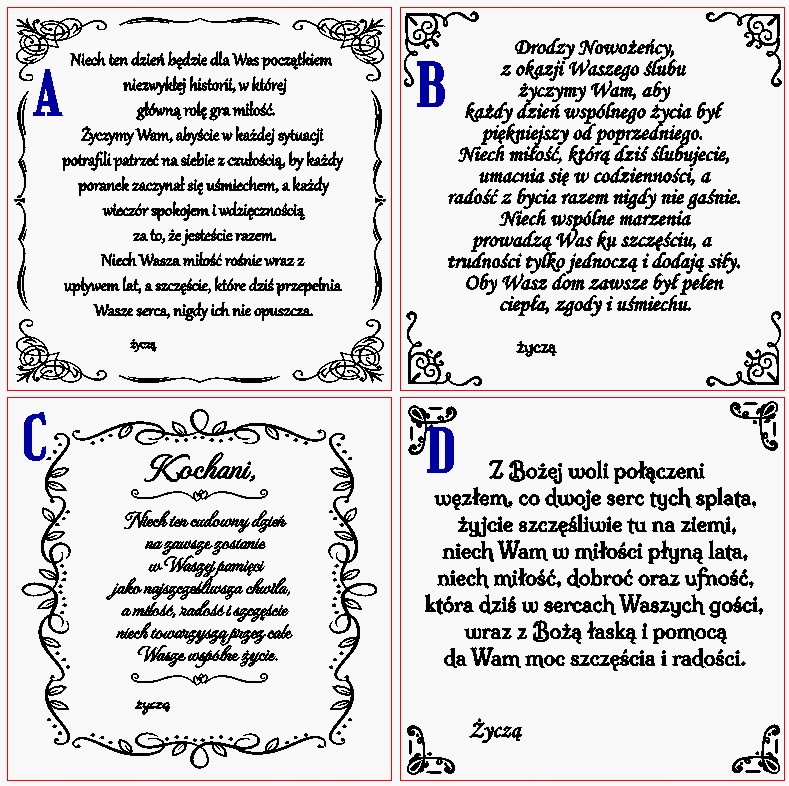 A
Niech ten dzień będzie dla Was początkiem
niezwykłej historii, w której
główną rolę gra miłość.
Życzymy Wam, abyście w każdej sytuacji
potrafili patrzeć na siebie z czułością, by każdy
poranek zaczynał się uśmiechem, a każdy
wieczór spokojem i wdzięcznością
za to, że jesteście razem.
Niech Wasza miłość rośnie wraz z
upływem lat, a szczęście, które dziś przepełnia
Wasze serca, nigdy ich nie opuszcza.
życzą
B
Drodzy Nowożeńcy,
z okazji Waszego ślubu
życzymy Wam, aby
każdy dzień wspólnego życia był
piękniejszy od poprzedniego.
Niech miłość, którą dziś ślubujecie,
umacnia się w codzienności, a
radość z bycia razem nigdy nie gaśnie.
Niech wspólne marzenia
prowadzą Was ku szczęściu, a
trudności tylko jednoczą i dodają siły.
Oby Wasz dom zawsze był pełen
ciepła, zgody i uśmiechu.
życzą
C
Kochani,
Niech ten cudowny dzień
na zawsze zostanie
w Waszej pamięci
jako najszczęśliwsza chwila,
a miłość, radość i szczęście
niech towarzyszą przez całe
Wasze wspólne życie.
życzą
D
Z Bożej woli połączeni
węzłem, co dwoje serc tych splata,
żyjcie szczęśliwie tu na ziemi,
niech Wam w miłości płyną lata,
niech miłość, dobroć oraz ufność,
która dziś w sercach Waszych gości,
wraz z Bożą łaską i pomocą
da Wam moc szczęścia i radości.
Życzą